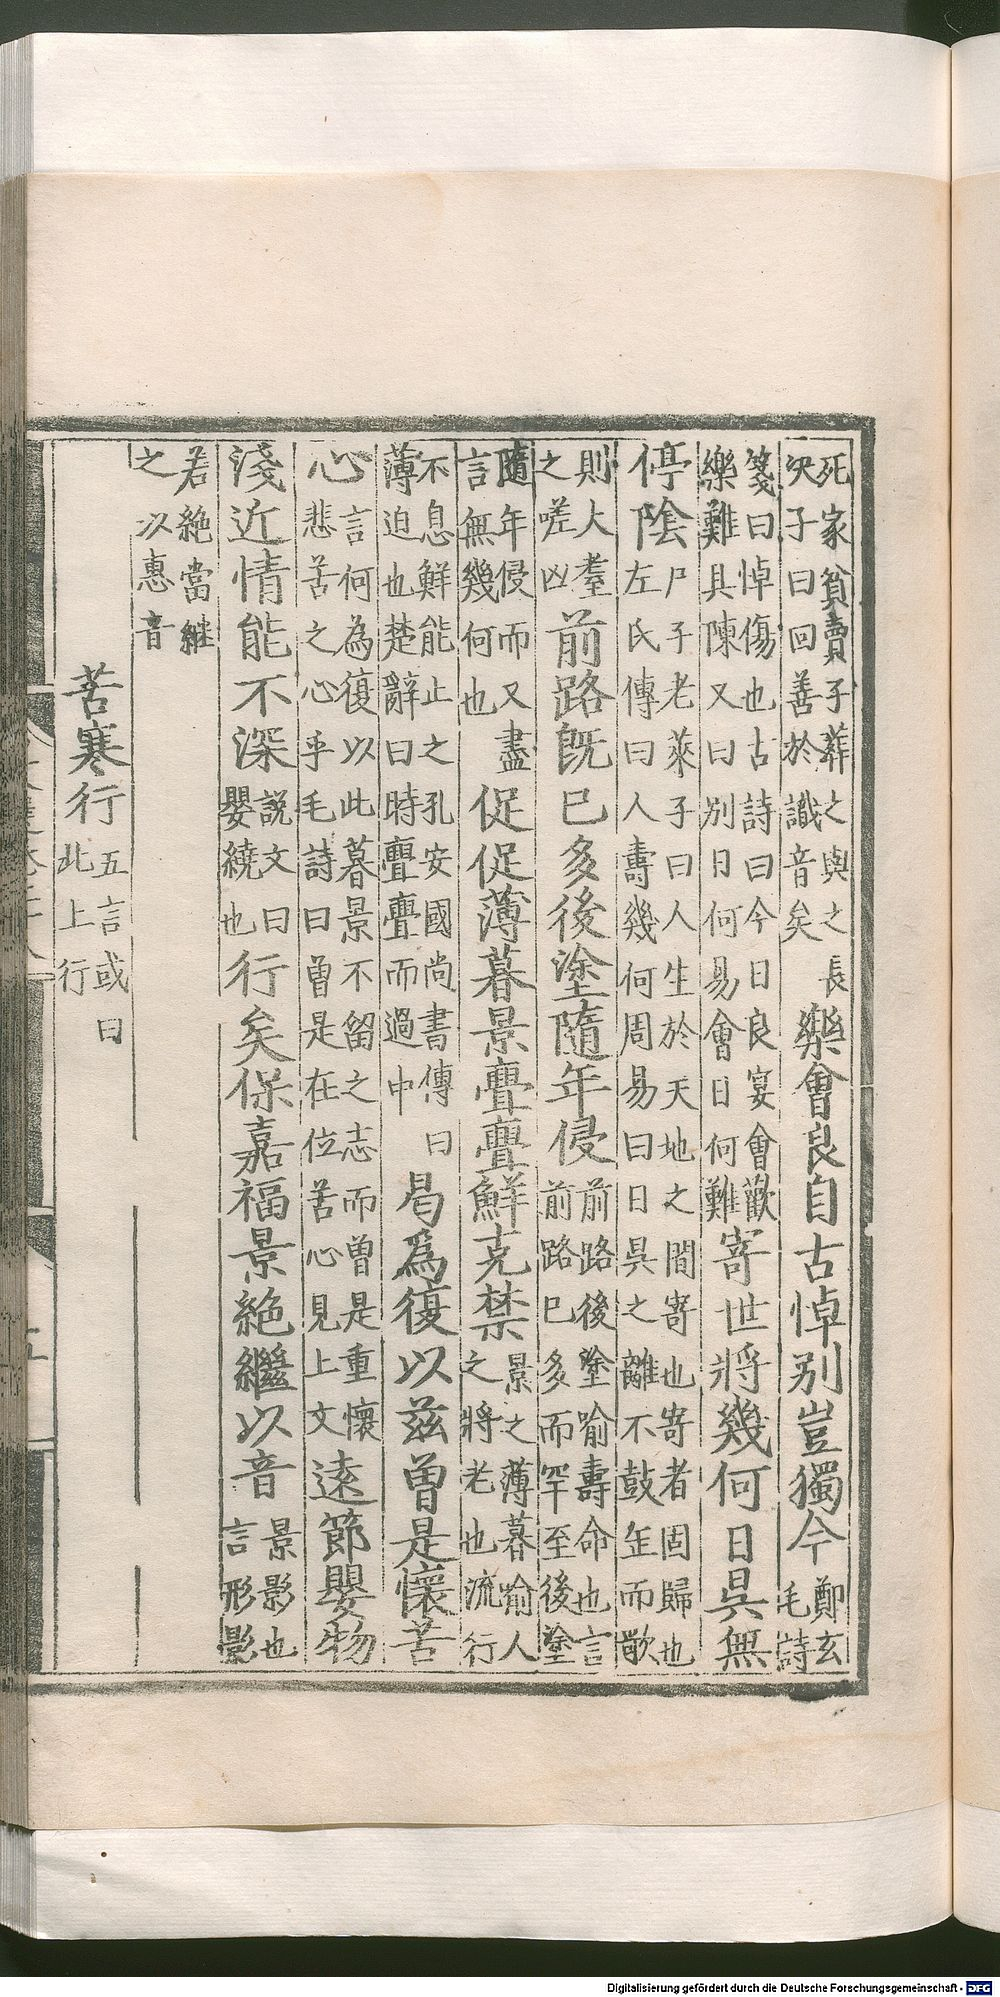 死家貧賣子葬之與之長訣子曰回善於識音矣樂會良自古悼別豈獨今鄭玄毛詩
箋曰悼傷也古詩曰今日良宴會歡樂難具陳又曰別日何易會日何難寄世將幾何日昃無
停陰尸子老萊子曰人生於天地之間寄也寄者固歸也左氏傳曰人壽幾何周易曰日昃之離不鼓缶而歌
則大耋之嗟凶前路旣已多後塗隨年侵前路後塗喻壽命也言前路已多而罕至後塗
隨年侵而又盡言無幾何也促促薄暮景亹亹鮮克禁景之薄暮喻人之將老也流行
不息鮮能止之孔安國尚書傳曰薄迫也楚辭曰時亹亹而過中曷爲復以兹曾是懷苦
心言何為復以此暮景不留之志而曾是重懷悲苦之心乎毛詩曰曾是在位苦心見上文遠節嬰物
淺近情能不深說文曰嬰繞也行矣保嘉福景絕繼以音景影也言形影
若絕當継之以惠音
苦寒行五言或曰此上行
Digitalisierung gefördert durch die Deutsche Forschungsgemeinschaft - DFG